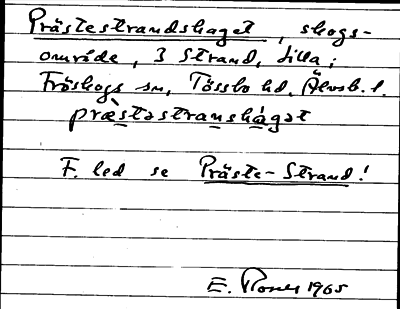 Prästestrandshaget, skogs-
område, 3 Strand, Lilla;
Fröskogs sn, Tössbo hd, Älvsb. l.
præ̀stəstranshágət
F. led se Präste-Strand!
E. 1965